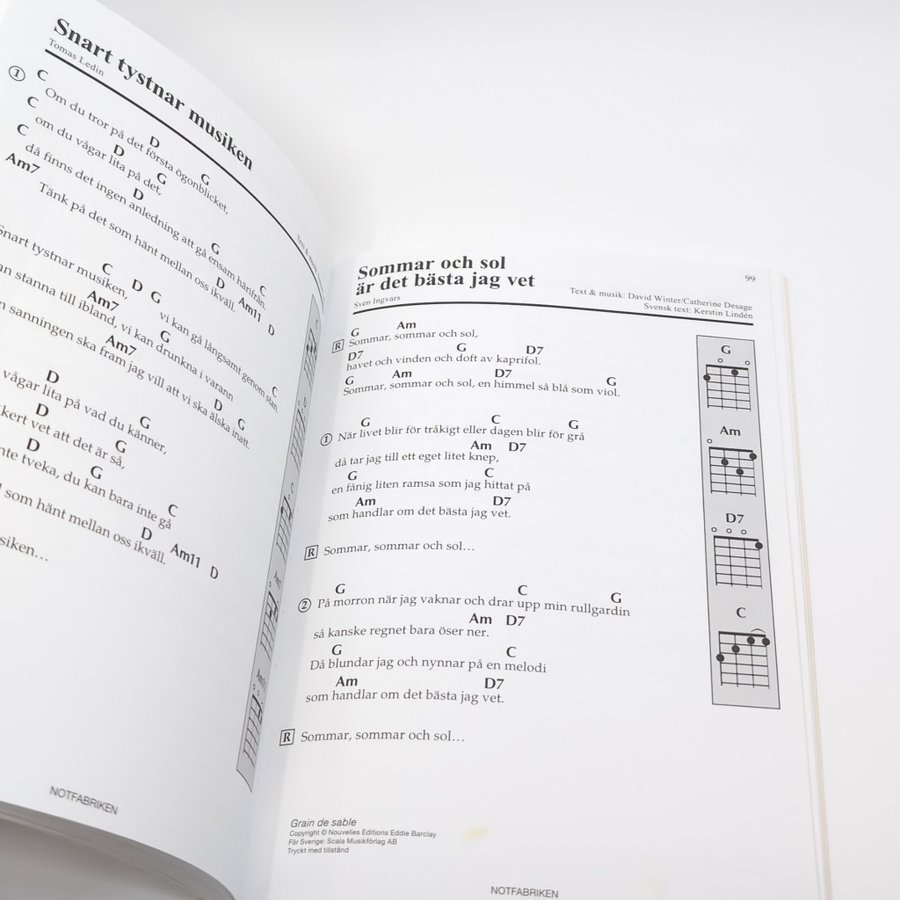 Snart tystnar musiken
Tomas Ledin
Text & musik:
C D G
1 Om du tror på det första ögonblicket,
C D G
om du vågar lita på det,
C D G
då finns det ingen anledning att gå ensam härifrån.
Am7 D C Am11 D
Tänk på det som hänt mellan oss ikväll.
C D G
Snart tystnar musiken,
vi kan gå långsamt genom stan.
Am7 G C
stanna till ibland, vi kan drunkna i varann
Am7 D G
sanningen ska fram jag vill att vi ska älska inatt.
D G
vågar lita på vad du känner,
D G
vet att det är så,
D G C
tveka, du kan bara inte gå
D Am11 D
som hänt mellan oss ikväll.
NOTFABRIKEN
99
Sommar och sol
är det bästa jag vet
Sven Ingvars
Text & musik: David Winter/Catherine Desage
Svensk text: Kerstin Lindén
G Am
R Sommar, sommar och sol,
D7 G D7
havet och vinden och doft av kaprifol.
G Am D7 G
Sommar, sommar och sol, en himmel så blå som viol.
G C G
1 När livet blir för tråkigt eller dagen blir för grå
Am D7
då tar jag till ett eget litet knep,
G C
en fånig liten ramsa som jag hittat på
Am D7
som handlar om det bästa jag vet.
R Sommar, sommar och sol...
G C G
2 På morron när jag vaknar och drar upp min rullgardin
Am D7
så kanske regnet bara öser ner.
G C
Då blundar jag och nynnar på en melodi
Am D7
som handlar om det bästa jag vet.
R Sommar, sommar och sol...
G
Am
D7
C
Grain de sable
Copyright © Nouvelles Editions Eddie Barclay
För Sverige: Scala Musikförlag AB
Tryckt med tillstånd
NOTFABRIKEN